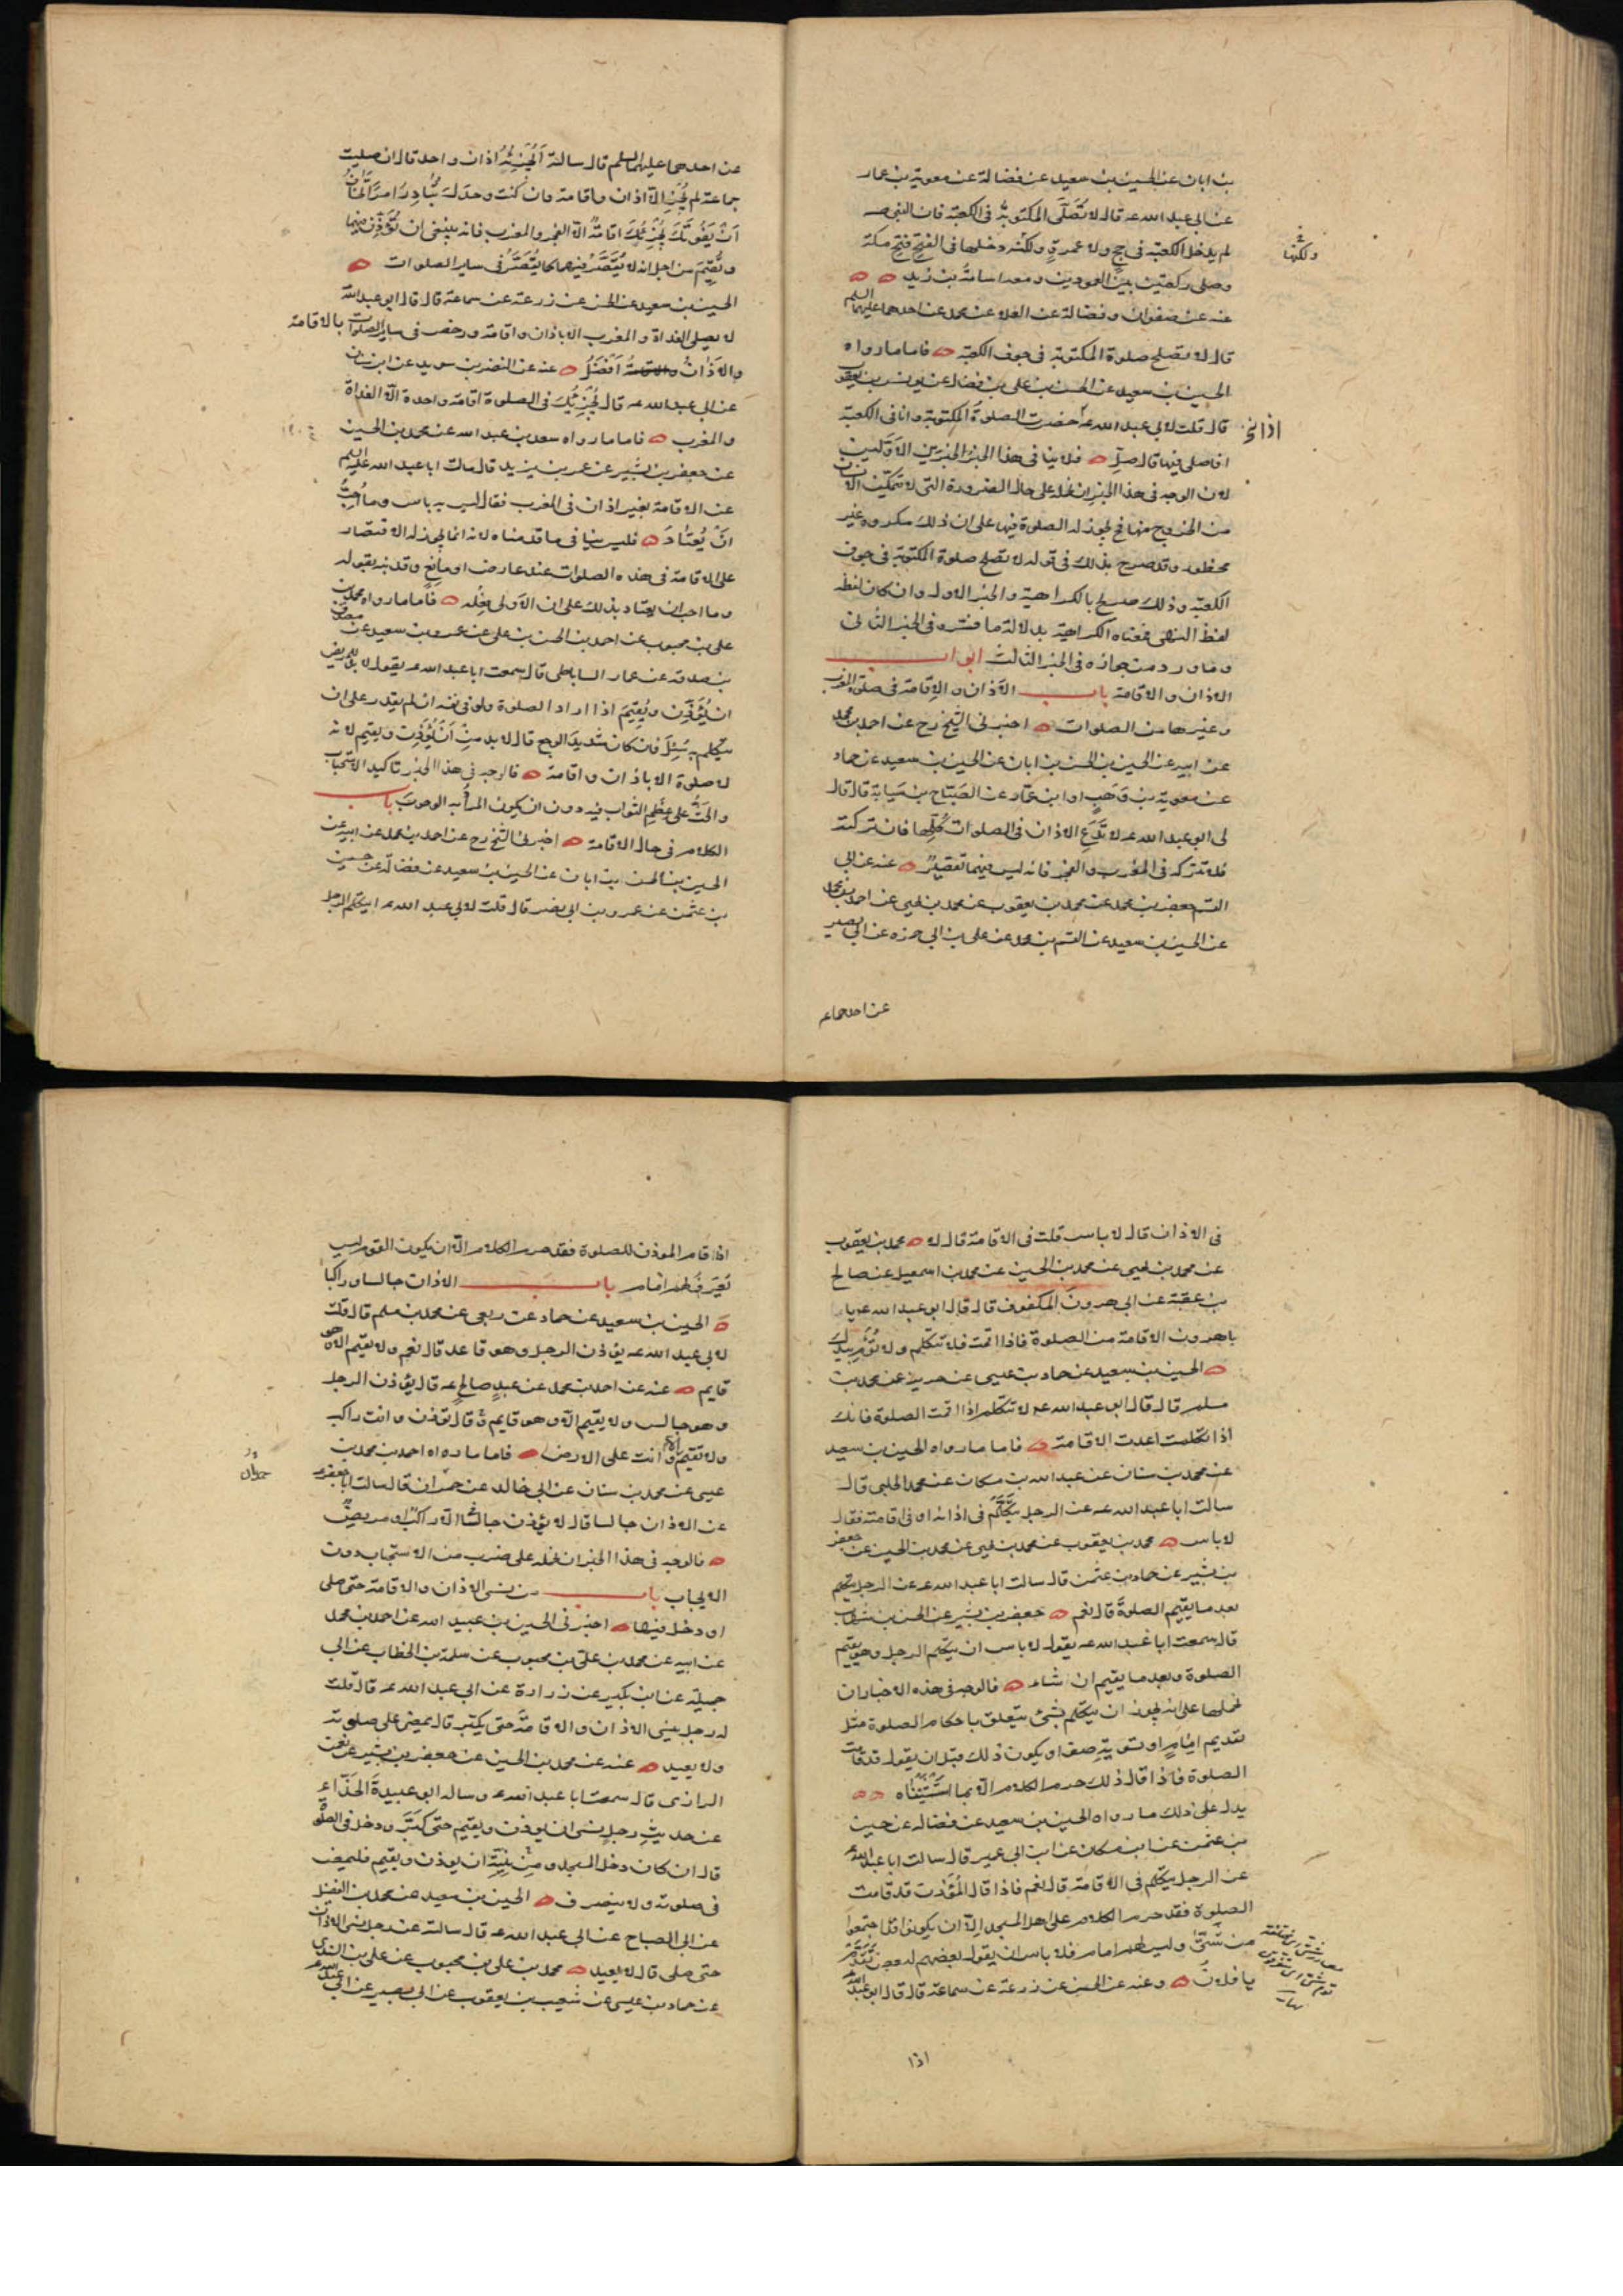 بن ابان عن الحسين بن سعيد عن فضالة عن معوية بن عمار
عن ابي عبد الله عه قال لا تُصَلَّى المكتوبةُ في الكعبة فان النبي صه
لم يدخل الكعبة في حج ولا عمرةٍ ولكنه دخلها في الفتح فتح مكة
ولكنها
وصلى ركعتين بين العمودين ومعه اسامة بن زيد
عنه عن صفوان وفضالة عن العلاء عن محمد عن احدهما عليهما السلم
قال لا تصلح صلوة المكتوبة في جوف الكعبة فاما ما رواه
الحسين بن سعيد عن الحسن بن على بن فضال عن يونس بن يعقوب
قال قلت لابي عبد الله عه حضرت الصلوة المكتوبة وانا في الكعبة
افاصلى فيها قال صلِّ فلا ينافى هذا الخبر الخبرين الاوّلين
لان الوجه في هذا الخبر ان نحمله على حال الضرورة التى لا يتمكن الانسان
من الخروج منها فح يجوز له الصلوة فيها على ان ذلك مكروه غير
محظور وقد صرح بذلك في قوله لا تصلح صلوة المكتوبة في جوف
الكعبة وذلك صريح بالكراهية والخبر الاول وان كان لفظه
لفظ النهى فمعناه الكراهية بدلالة ما فسّره في الخبر الثانى
وما ورد من جوازه في الخبر الثالث ابواب
الاذان والاقامة باب الاذان والاقامة في صلوة المغرب
وغيرها من الصلوات اخبرنى الشيخ رح عن احمد بن محمد
عن ابيه عن الحسين بن الحسن بن ابان عن الحسين بن سعيد عن حماد
عن معوية بن وَهب او ابن عمّار عن الصَبّاح بن سَيابة قال قال
لى ابو عبد الله عه لا تَدَعِ الاذان في الصلوات كُلِّها فان تركته
فلا تتركه في المغرب والفجر فانه ليس فيهما تقصيرٌ عنه عن ابي
القسم جعفر بن محمد عن محمد بن يعقوب عن محمد بن يحيى عن احمد بن محمد
عن الحسين بن سعيد عن القسم بن محمد عن على بن ابي حمزه عن ابي بصير
عن احدهما ع
عن احدهما عليهما السلم قال سالته اَيُجْزِئُ اذان واحد قال ان صليت
جماعة لم يُجْزِ الّا اذان واقامة وان كنت وحدك تُبادِرُ امراً تخافُ
اَنْ يَفُوتَكَ يُجْزِئُكَ اقامةٌ الّا الفجر والمغرب فانه ينبغى ان تُؤَذِّنَ فيهما
وتُقِيمَ من اجل انه لا يُقَصَّرُ فيهما كما يُقَصَّرُ في ساير الصلوات
الحسين بن سعيد عن الحسن عن زرعة عن سماعة قال قال ابو عبد الله
لا يصلى الغداة والمغرب الا باذان واقامة ورخص في ساير الصلوات بالاقامة
والاَذانُ اَفْضَلُ عنه عن النضر بن سويد عن ابن سنان
عن ابي عبد الله عه قال يُجْزِئُكَ في الصلوة اقامة واحدة الّا الغداة
والمغرب فاما ما رواه سعد بن عبد الله عن محمد بن الحسين
عن جعفر بن بشير عن عمر بن يزيد قال سالت ابا عبد الله عليه السلم
عن الاقامة بغير اذان في المغرب فقال ليس به باس وما اُحِبُّ
انْ يُعْتادَ فليس ينافى ما قدمناه لانه انما يجوز له الاقتصار
على الاقامة في هذه الصلوات عند عارض او مانعٍ وقد نبّه بقوله
وما احب ان يعتاد بذلك على ان الاَولى فعله فاما ما رواه محمد بن
على بن محبوب عن احمد بن الحسن بن على عن عمرو بن سعيد عن مصدق
بن صدقة عن عمار الساباطى قال سمعت ابا عبد الله عه يقول لا بد للمريض
ان يُؤَذِّنَ ويُقِيمَ اذا اراد الصلوة ولو في نفسه ان لم يقدر على ان
يتكلم به سُئِلَ فان كان شديدَ الوجع قال لا بد مِنْ اَنْ يُؤَذِّنَ ويقيم لانه
لا صلوة الا باذان واقامة فالوجه في هذا الخبر تاكيد الاستحباب
والحثّ على عِظَمِ الثواب فيه دون ان يكون المرادُ به الوجوبَ باب
الكلام في حال الاقامة اخبرنى الشيخ رح عن احمد بن محمد عن ابيه عن
الحسين بن الحسن بن ابان عن الحسين بن سعيد عن فضالة عن حسين
بن عثمن عن عمرو بن ابي نصر قال قلت لابي عبد الله عه ايتكلم الرجل
في الاذان قال لا باس قلت في الاقامة قال لا محمد بن يعقوب
عن محمد بن يحيى عن محمد بن الحسين عن محمد بن اسمعيل عن صالح
بن عقبة عن ابي هرونَ المكفوف قال قال ابو عبد الله عه يا
با هرون الاقامة من الصلوة فاذا اقمت فلا تتكلم ولا تُؤمِ بيدك
الحسين بن سعيد عن حماد بن عيسى عن حريز عن محمد بن
مسلم قال قال ابو عبد الله عه لا تتكلم اذا اقمت الصلوة فانك
اذا تكلمت اعدت الاقامة فاما ما رواه الحسين بن سعيد
عن محمد بن سنان عن عبد الله بن مسكان عن محمد الحلبى قال
سالت ابا عبد الله عه عن الرجل يتكلَّمُ في اذانه او في اقامته فقال
لا باس محمد بن يعقوب عن محمد بن يحيى عن محمد بن الحسين عن جعفر
بن بشير عن حماد بن عثمن قال سالت ابا عبد الله عه عن الرجل يتكلم
بعد ما يقيم الصلوةَ قال نعم جعفر بن بشير عن الحسن بن شهاب
قال سمعت ابا عبد الله عه يقول لا باس ان يتكلم الرجل وهو يقيم
الصلوة وبعد ما يقيم ان شاء فالوجه في هذه الاخبار ان
نحملها على انه يجوز ان يتكلم بشئ يتعلق باحكام الصلوة مثل
تقديم امامٍ او تسويةِ صف او يكون ذلك قبل ان يقول قد قامت
الصلوة فاذا قال ذلك حرم الكلام الّا بما اسْتَثْنَيْناه
يدل على ذلك ما رواه الحسين بن سعيد عن فضالة عن حسين
بن عثمن عن ابن مسكان عن ابن ابي عمير قال سالت ابا عبد الله عه
عن الرجل يتكلم في الاقامة قال نعم فاذا قال المُؤَذِّن قد قامت
الصلوة فقد حرم الكلام على اهل المسجد الّا ان يكونوا قد اجتمعوا
من شَتَّى وليس لهم امام فلا باس ان يقول بعضهم لبعض تَقَدَّمْ
يا فلان وعنه عن الحسن عن زرعة عن سماعة قال قال ابو عبد الله
اذا
اذا قام الموذن للصلوة فقد حرم الكلام الّا ان يكون القوم ليس
يُعرَفُ لهم امام باب الاذان جالسا وراكبا
الحسين بن سعيد عن حماد عن ربعى عن محمد بن مسلم قال قلت
لابي عبد الله عه يؤذن الرجل وهو قاعد قال نعم ولا يقيم الا وهو
قايم عنه عن احمد بن محمد عن عبدٍ صالحٍ عه قال يؤذن الرجل
وهو جالس ولا يقيم الّا وهو قايم وقال تؤذن وانت راكب
ولا تقيم الا وانت على الارض فاما ما رواه احمد بن محمد بن
عيسى عن محمد بن سنان عن ابي خالد عن حمران قال سالت ابا جعفر عه
عن الاذان جالسا قال لا يؤذن جالسًا الّا راكبٌ او مريضٌ
فالوجه في هذا الخبر ان نحمله على ضرب من الاستحباب دون
الايجاب باب من نسى الاذان والاقامة حتى صلى
او دخل فيها اخبرنى الحسين بن عبيد الله عن احمد بن محمد
عن ابيه عن محمد بن على بن محبوب عن سلمة بن الخطاب عن ابي
جميلة عن ابن بكير عن زرارة عن ابي عبد الله عه قال قلت
له رجل ينسى الاذان والاقامةَ حتى يكبّر قال يمضى على صلوته
ولا يعيد عنه عن محمد بن الحسين عن جعفر بن بشير عن نعمن
الرازى قال سمعت ابا عبد الله عه وساله ابو عبيدةَ الحَذّاءِ
عن حديثِ رجلٍ نسى ان يوذن ويقيم حتى كبَّرَ ودخل في الصلوة
قال ان كان دخل المسجد ومِنْ نِيَّتِه ان يوذن ويقيم فليمض
في صلوته ولا ينصرف الحسين بن سعيد عن محمد بن الفضيل
عن ابي الصباح عن ابي عبد الله عه قال سالته عن رجل نسى الاذان
حتى صلى قال لا يعيد محمد بن على بن محبوب عن على بن السندى
عن حماد بن عيسى عن شعيب بن يعقوب عن ابي بصير عن ابي عبد الله عه